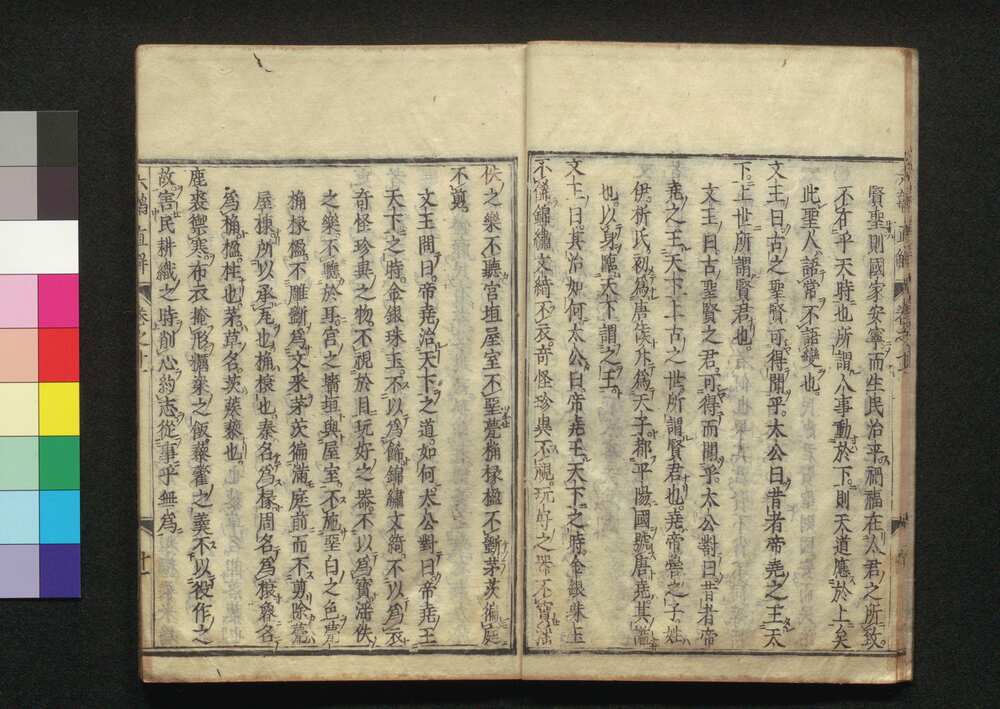 賢聖則國家安寧而生民治平禍福在人君之所致
不在乎天時也所謂人事動於下則天道應於上矣
此聖人語常不語變也
文王曰古之聖賢可得聞乎太公曰昔者帝堯之王天
下上世所謂賢君也
文王曰古聖賢之君可得而聞乎太公對曰昔者帝
堯之王天下上古之世所謂賢君也堯帝嚳之子姓
伊祈氏初爲唐侯升爲天子都平陽國號唐堯其諡
也以身臨天下謂之王
文王曰其治如何太公曰帝堯王天下之時金銀珠玉
不飾錦繡文綺不衣奇怪珍異不視玩好之器不寶淫
佚之樂不聽宮垣屋室不堊甍桷椽楹不斲茅茨徧庭
不剪
文王問曰帝堯治天下之道如何太公對曰帝堯王
天下之時金銀珠玉不以爲飾錦繡文綺不以爲衣
奇怪珍異之物不視於目玩好之器不以爲寶淫佚
之樂不聽於耳宮之墻垣與屋室不施堊白之色甍
桷椽楹不雕斲爲文采茅茨徧滿庭前而不剪除甍
屋棟所以承瓦也桷榱也秦名爲椽周名爲榱魯名
爲桷楹柱也茅草名茨蒺蔾也
鹿裘禦寒布衣掩形糲粱之飯藜藿之羹不以役作之
故害民耕織之時削心約志從事乎無爲
六韜直解
卷之一
十一